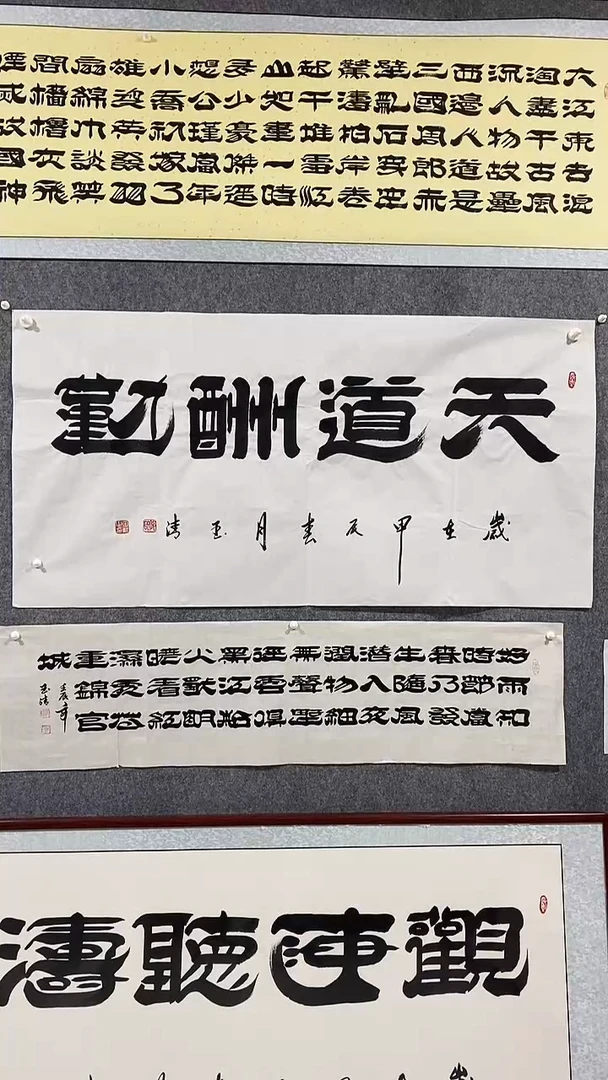 大江東去浪
淘盡千古風
流人物故壘
西邊人道是
三國周郎赤
壁亂石穿空
驚濤拍岸卷
起千堆雪江
山如畫一時
多少豪傑遥
想公瑾當年
小喬初嫁了
雄姿英發羽
扇綸巾談笑
間檣櫓灰飛
煙滅故國神
天道酬勤
歲在甲辰春月
好雨知
時節當
春乃發
生隨風
潜入夜
潤物細
無聲野
徑雲俱
黑江船
火獨明
曉看紅
濕處花
重錦官
城
觀海聽濤